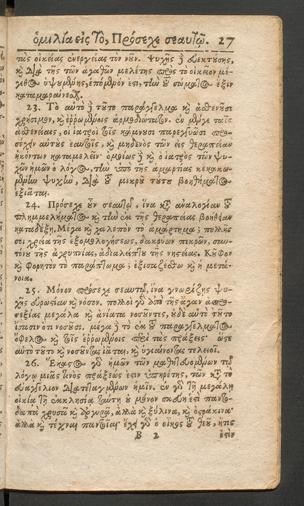 ὁμιλία εἰς Τὸ, Πρόσεχε σεαυτῷ. 27
τὰς οἰκείας ἐνεργείας τὸν νοῦν. Ψυχῆς
καὶ διὰ τῆς τῶν ἀγαθῶν μελέτης πρὸς τὸ οἰκεῖον μέ-
γεθος ὑψωμένης, ἑπόμενόν ἐστι, τὴν τοῦ σώματος ἕξιν
καταμαραίνεσθαι.
23. Τὸ αὐτὸ τοῦτο παράγγελμα καὶ ἀσθενοῦσι
χρήσιμον, καὶ ἐρρωμένοις ἁρμοδιώτατον. ἐν μέν γε ταῖς
ἀσθενείαις, οἱ ἰατροὶ τοῖς κάμνουσι παρεγγυῶσι προ-
σέχειν αὐτοὺς ἑαυτοῖς, καὶ μηδενὸς τῶν εἰς θεραπείαν
ἡκόντων καταμελεῖν· ὁμοίως καὶ ὁ ἰατρὸς τῶν ψυ-
χῶν ἡμῶν ὁ λόγος, τὴν ὑπὸ τῆς ἁμαρτίας κεκακω-
μένην ψυχὴν, διὰ τοῦ μικροῦ τούτου βοηθήματος
ἐξιᾶται.
24. Πρόσεχε οὖν σεαυτῷ, ἵνα κατ' ἀναλογίαν τοῦ
πλημμελήματος καὶ τὴν ἐκ τῆς θεραπείας βοήθειαν
καταδέξῃ. Μέγα καὶ χαλεπὸν τὸ ἁμάρτημα; πολλῆς
σοι χρεία τῆς ἐξομολογήσεως, δακρύων πικρῶν, συν-
τόνου τῆς ἀγρυπνίας, ἀδιαλείπτου τῆς νηστείας. Κοῦφον
καὶ φορητὸν τὸ παράπτωμα; ἐξισαζέσθω καὶ ἡ μετά-
νοια.
25. Μόνον πρόσεχε σεαυτῷ, ἵνα γνωρίζῃς ψυ-
χῆς εὐρωστίαν καὶ νόσον. πολλοὶ γὰρ ὑπὸ τῆς ἄγαν ἀπρο-
σεξίας μεγάλα καὶ ἀνίατα νοσοῦντες, οὐδὲ αὐτὸ τοῦτο
ἴσασιν ὅτι νοσοῦσι. μέγα τὸ ἐκ τοῦ παραγγέλματος
ὄφελος καὶ τοῖς ἐρρωμένοις περὶ τὰς πράξεις· ὥστε
αὐτὸ τοῦτο καὶ νοσοῦντας ἰᾶται, καὶ ὑγιαίνοντας τελειοῖ.
26. Ἕκαστος γὰρ ἡμῶν τῶν μαθητευομένων τῷ
λόγῳ μιᾶς τινὸς πράξεώς ἐστιν ὑπηρέτης, τῶν κατὰ τὸ
εὐαγγέλιον διατεταγμένων ἡμῖν. ἐν γὰρ τῇ μεγάλῃ
οἰκίᾳ τῇ ἐκκλησίᾳ ταύτῃ οὐ μόνον σκεύη ἐστὶ παντο-
δαπὰ χρυσᾶ καὶ ἀργυρᾶ, ἀλλὰ καὶ ξύλινα, καὶ ὀστράκινα·
ἀλλὰ καὶ τέχναι παντοῖαι. ἔχει γὰρ ὁ οἶκος τοῦ Θεοῦ, ἥτις
B 2 ἐστὶν